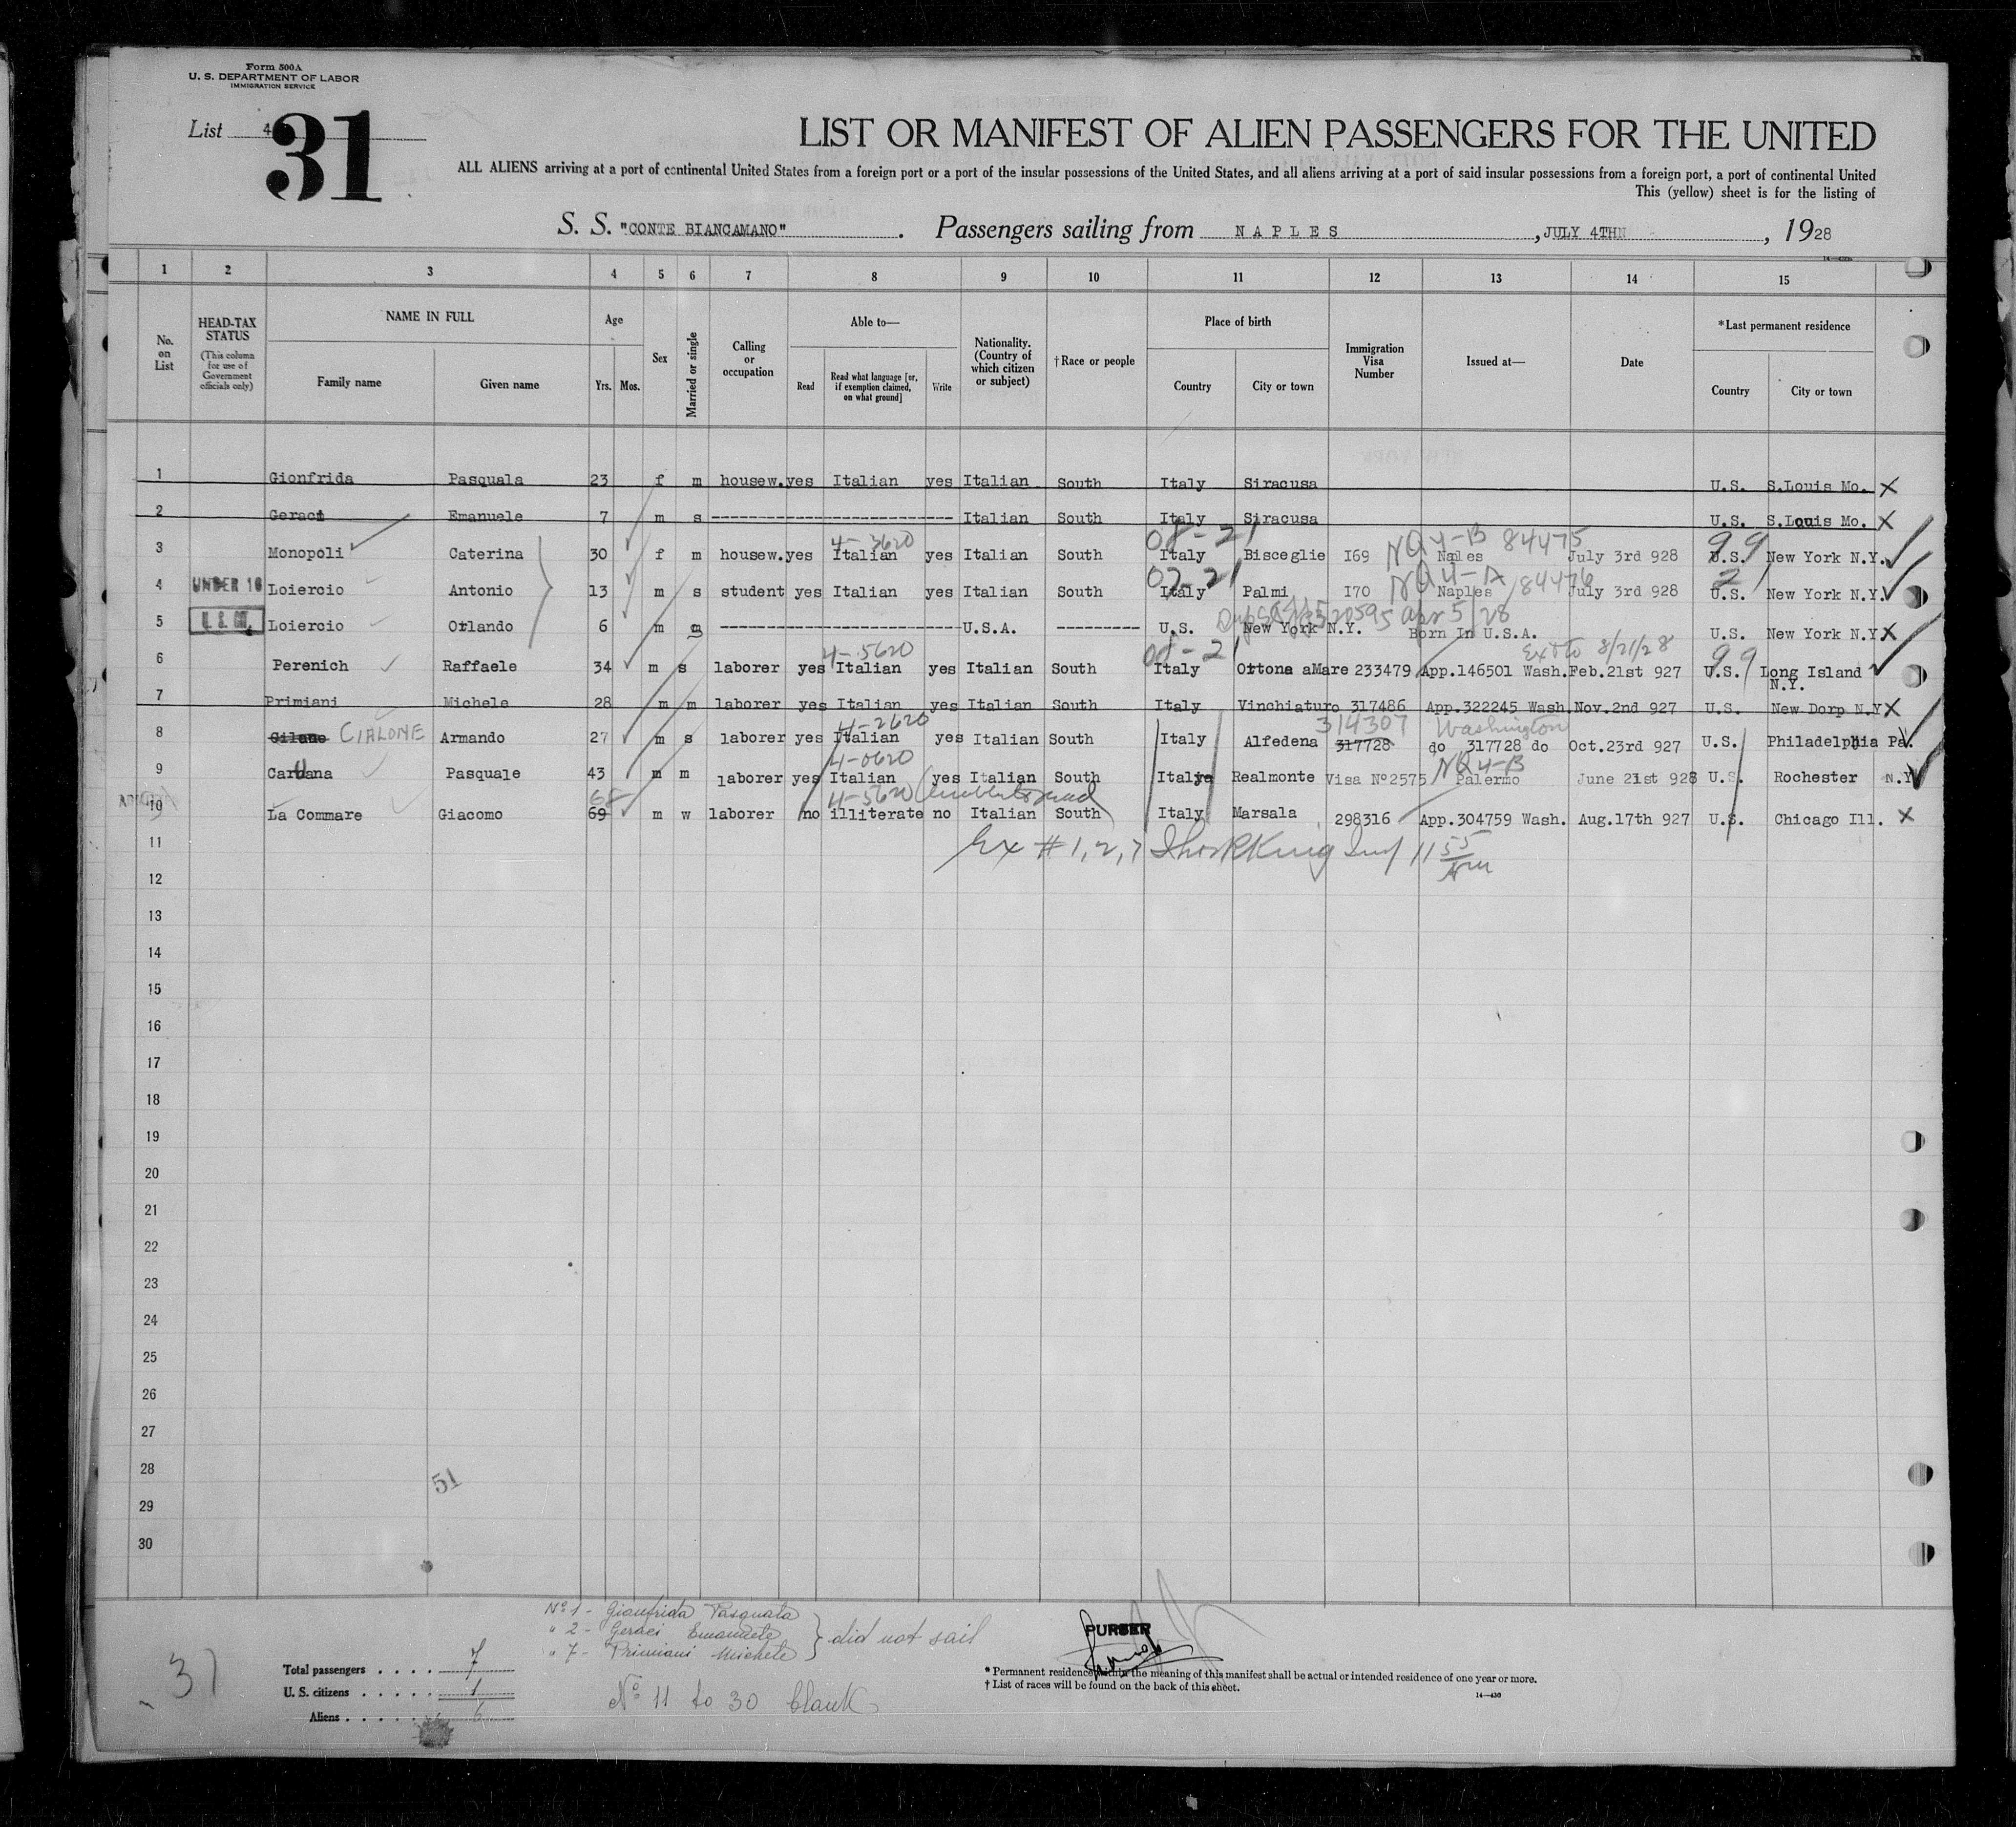 Form 500A
U. S. DEPARTMENT OF LABOR
IMMIGRATION SERVICE
List 4
31
LIST OR MANIFEST OF ALIEN PASSENGERS FOR THE UNITED
ALL ALIENS arriving at a port of continental United States from a foreign port or a port of the insular possessions of the United States, and all aliens arriving at a port of said insular possessions from a foreign port, a port of continental United
This (yellow) sheet is for the listing of
S. S. "CONTE BIANCAMANO". Passengers sailing from NAPLES, JULY 4TH, 1928
1 2 3 4 5 6 7 8 9 10 11 12 13 14 15
No. on List
HEAD-TAX STATUS (This column for use of Government officials only)
NAME IN FULL
Family name Given name
Age
Yrs. Mos.
Sex
Married or single
Calling or occupation
Able to—
Read Read what language [or, if exemption claimed, on what ground] Write
Nationality. (Country of which citizen or subject)
†Race or people
Place of birth
Country City or town
Immigration Visa Number
Issued at—
Date
*Last permanent residence
Country City or town
1 Gionfrida Pasquala 23 f m housew. yes Italian yes Italian South Italy Siracusa U.S. S.Louis Mo. X
2 Geraci Emanuele 7 m s Italian South Italy Siracusa U.S. S.Louis Mo. X
4-3620 08-21 NQ 4-B 84475 99
3 Monopoli Caterina 30 f m housew. yes Italian yes Italian South Italy Bisceglie I69 Naples July 3rd 928 U.S. New York N.Y.
02-21 NQ 4-A 84476
4 UNDER 16 Loiercio Antonio 13 m s student yes Italian yes Italian South Italy Palmi I70 Naples July 3rd 928 U.S. New York N.Y.
Apr 5/28
5 Loiercio Orlando 6 m s U.S.A. U.S. New York N.Y. Born In U.S.A. U.S. New York N.Y. X
4-5620 08-21 Ext to 8/21/28 99
6 Perenich Raffaele 34 m s laborer yes Italian yes Italian South Italy Ortona aMare 233479 App.146501 Wash. Feb.21st 927 U.S. Long Island N.Y.
7 Primiani Michele 28 m m laborer yes Italian yes Italian South Italy Vinchiaturo 317486 App.322245 Wash. Nov.2nd 927 U.S. New Dorp N.Y X
4-2620 314307 Washington
8 Cilano CIALONE Armando 27 m s laborer yes Italian yes Italian South Italy Alfedena 317728 do 317728 do Oct.23rd 927 U.S. Philadelphia Pa.
4-0620 NQ 4-B
9 Caruana Pasquale 43 m m laborer yes Italian yes Italian South Italy Realmonte Visa Nº2575 Palermo June 21st 928 U.S. Rochester N.Y
68 4-5620
10 La Commare Giacomo 69 m w laborer no illiterate no Italian South Italy Marsala 298316 App.304759 Wash. Aug.17th 927 U.S. Chicago Ill. X
11 Ex # 1, 2, 7 Insp 11 55
12
13
14
15
16
17
18
19
20
21
22
23
24
25
26
27
28
51
29
30
Nº 1 - Gianfrida Pasquala
" 2 - Geraci Emanuele
" 7 - Primiani Michele
} did not sail
Nº 11 to 30 blank
31
Total passengers . . . . 7
U. S. citizens . . . . . 1
Aliens . . . . . 6
PURSER
* Permanent residence within the meaning of this manifest shall be actual or intended residence of one year or more.
† List of races will be found on the back of this sheet.
14—430